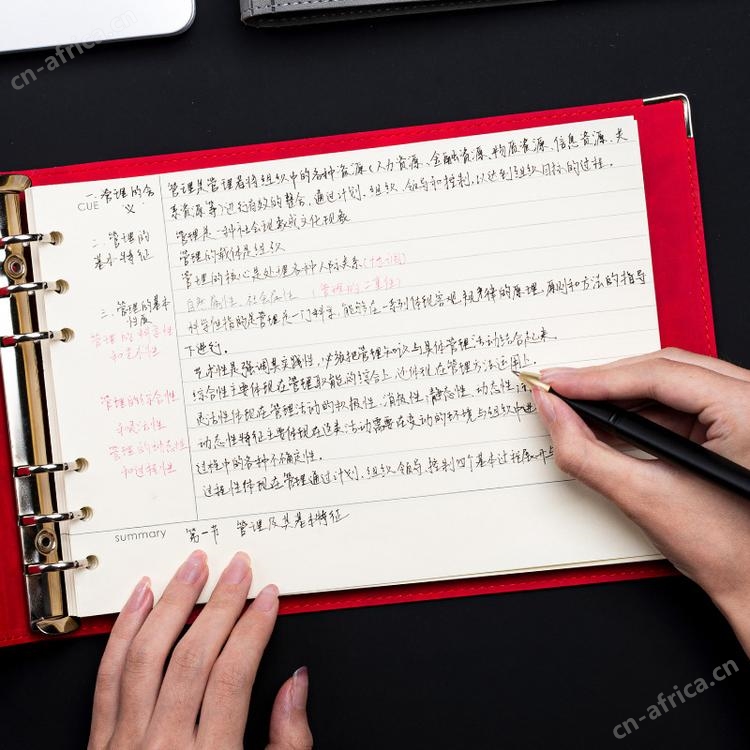 cn-africa.cn
CUE
一. 管理的含义
二. 管理的
基本特征
三. 管理的基本
性质
管理的科学性
和艺术性
管理的综合性
和灵活性
管理的动态性
和过程性
管理是管理者将组织中的各种资源(人力资源、金融资源、物质资源、信息资源、关
系资源等)进行有效的整合,通过计划、组织、领导和控制,以达到组织目标的过程。
管理是一种社会现象或文化现象
管理的载体是组织
管理的核心是处理各种人际关系
自然属性、社会属性 (管理的二重性)
科学性指的是管理是一门科学,能够在一系列体现客观规律的原理、原则和方法的指导
下进行。
艺术性是强调其实践性,必须把管理知识与具体管理活动结合起来。
综合性主要体现在管理职能的综合上,还体现在管理方法运用上。
灵活性体现在管理活动的积极性、消极性、静态性、动态性
动态性特征主要体现在这类活动需要在变动的环境与组织中进
过程中的各种不确定性。
过程性体现在管理通过计划、组织、领导、控制四个基本过程展开
summary
第一节 管理及其基本特征
cn-africa.cn